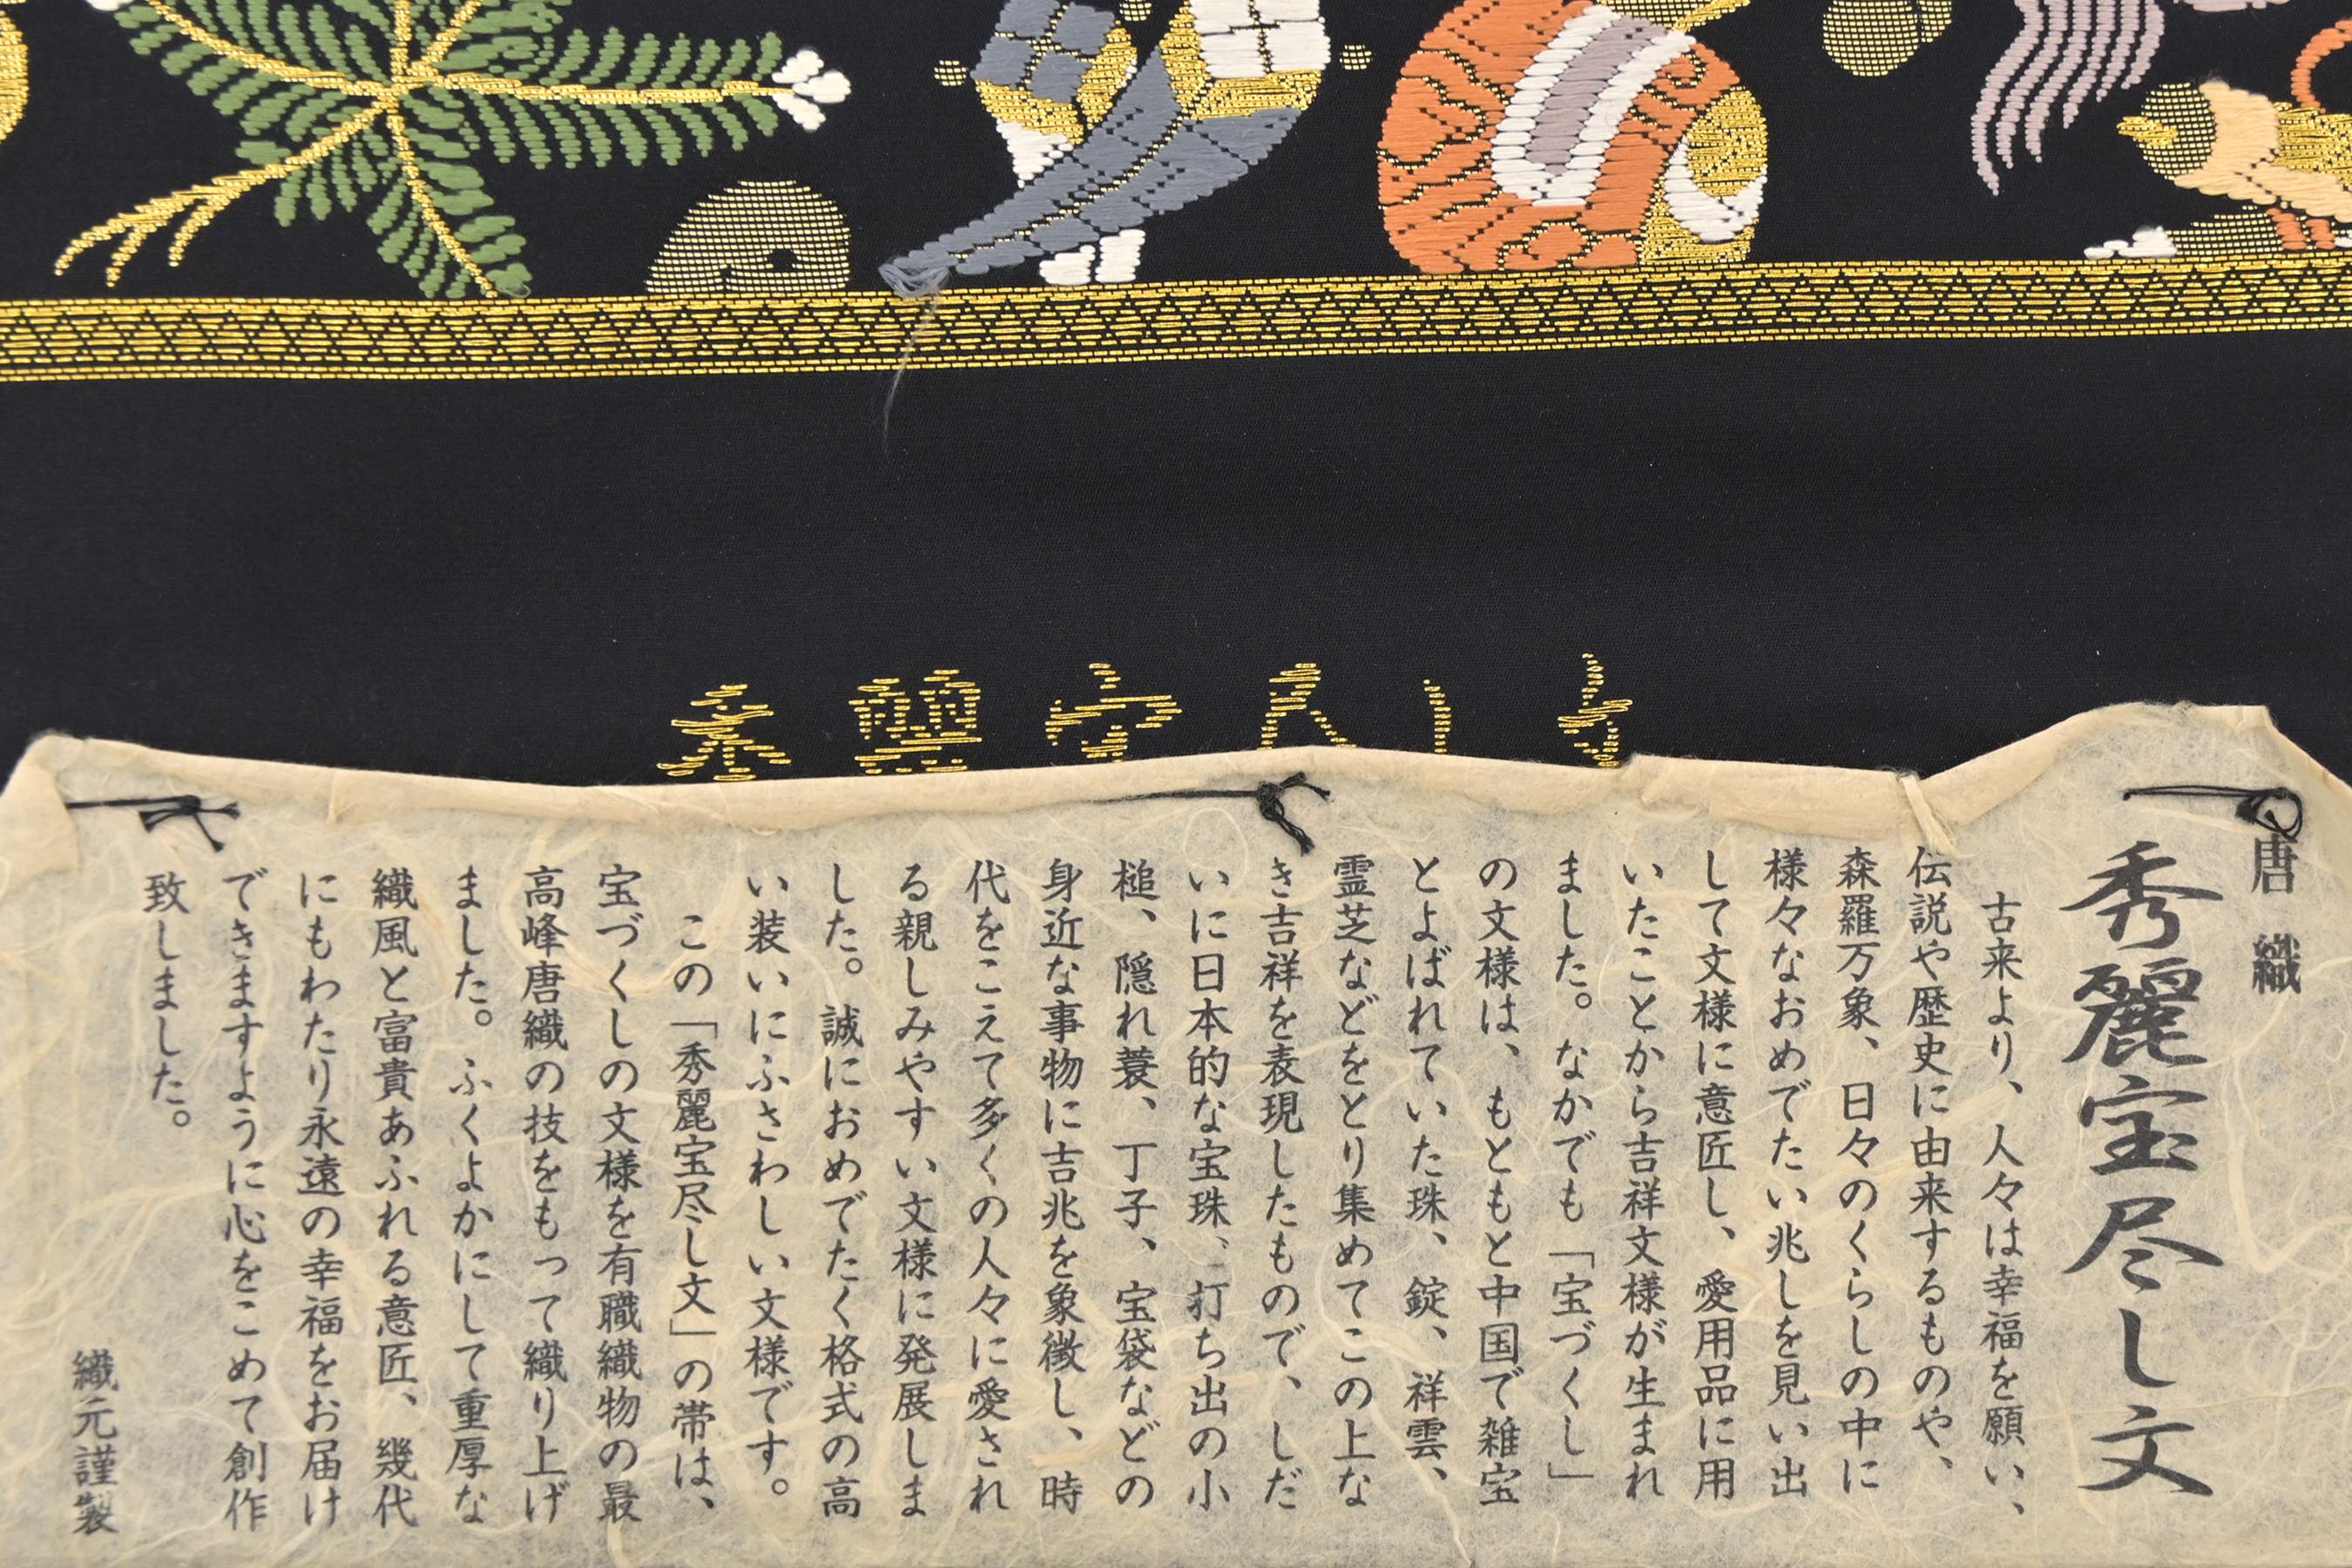 唐織
秀麗宝尽し文
古来より、人々は幸福を願い、
伝説や歴史に由来するものや、
森羅万象、日々のくらしの中に
様々なおめでたい兆しを見い出
して文様に意匠し、愛用品に用
いたことから吉祥文様が生まれ
ました。なかでも「宝づくし」
の文様は、もともと中国で雑宝
とよばれていた珠、錠、祥雲、
霊芝などをとり集めてこの上な
き吉祥を表現したもので、しだ
いに日本的な宝珠、打ち出の小
槌、隠れ蓑、丁子、宝袋などの
身近な事物に吉兆を象徴し、時
代をこえて多くの人々に愛され
る親しみやすい文様に発展しま
した。誠におめでたく格式の高
い装いにふさわしい文様です。
この「秀麗宝尽し文」の帯は、
宝づくしの文様を有職織物の最
高峰唐織の技をもって織り上げ
ました。ふくよかにして重厚な
織風と富貴あふれる意匠、幾代
にもわたり永遠の幸福をお届け
できますように心をこめて創作
致しました。
織元謹製